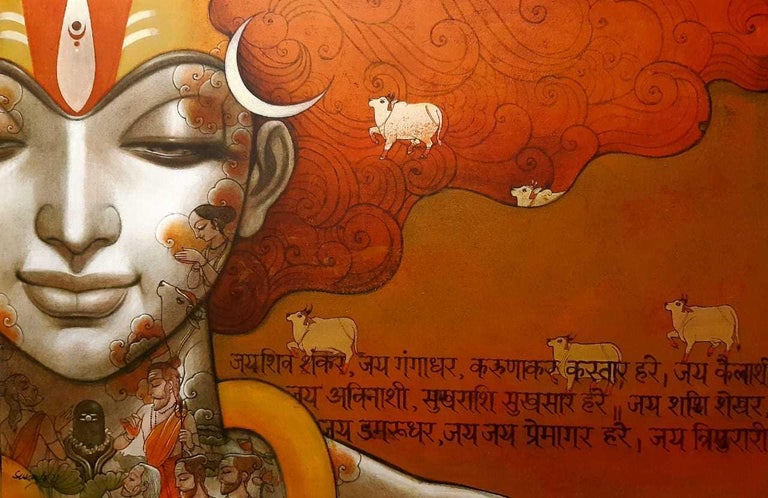 जय शिव शंकर, जय गंगाधर, करुणाकर करतार हरे, जय कैलाशी
जय अविनाशी, सुखराशि सुखसार हरे॥ जय शशि शेखर,
जय डमरूधर, जय जय प्रेमागर हरे, जय त्रिपुरारी